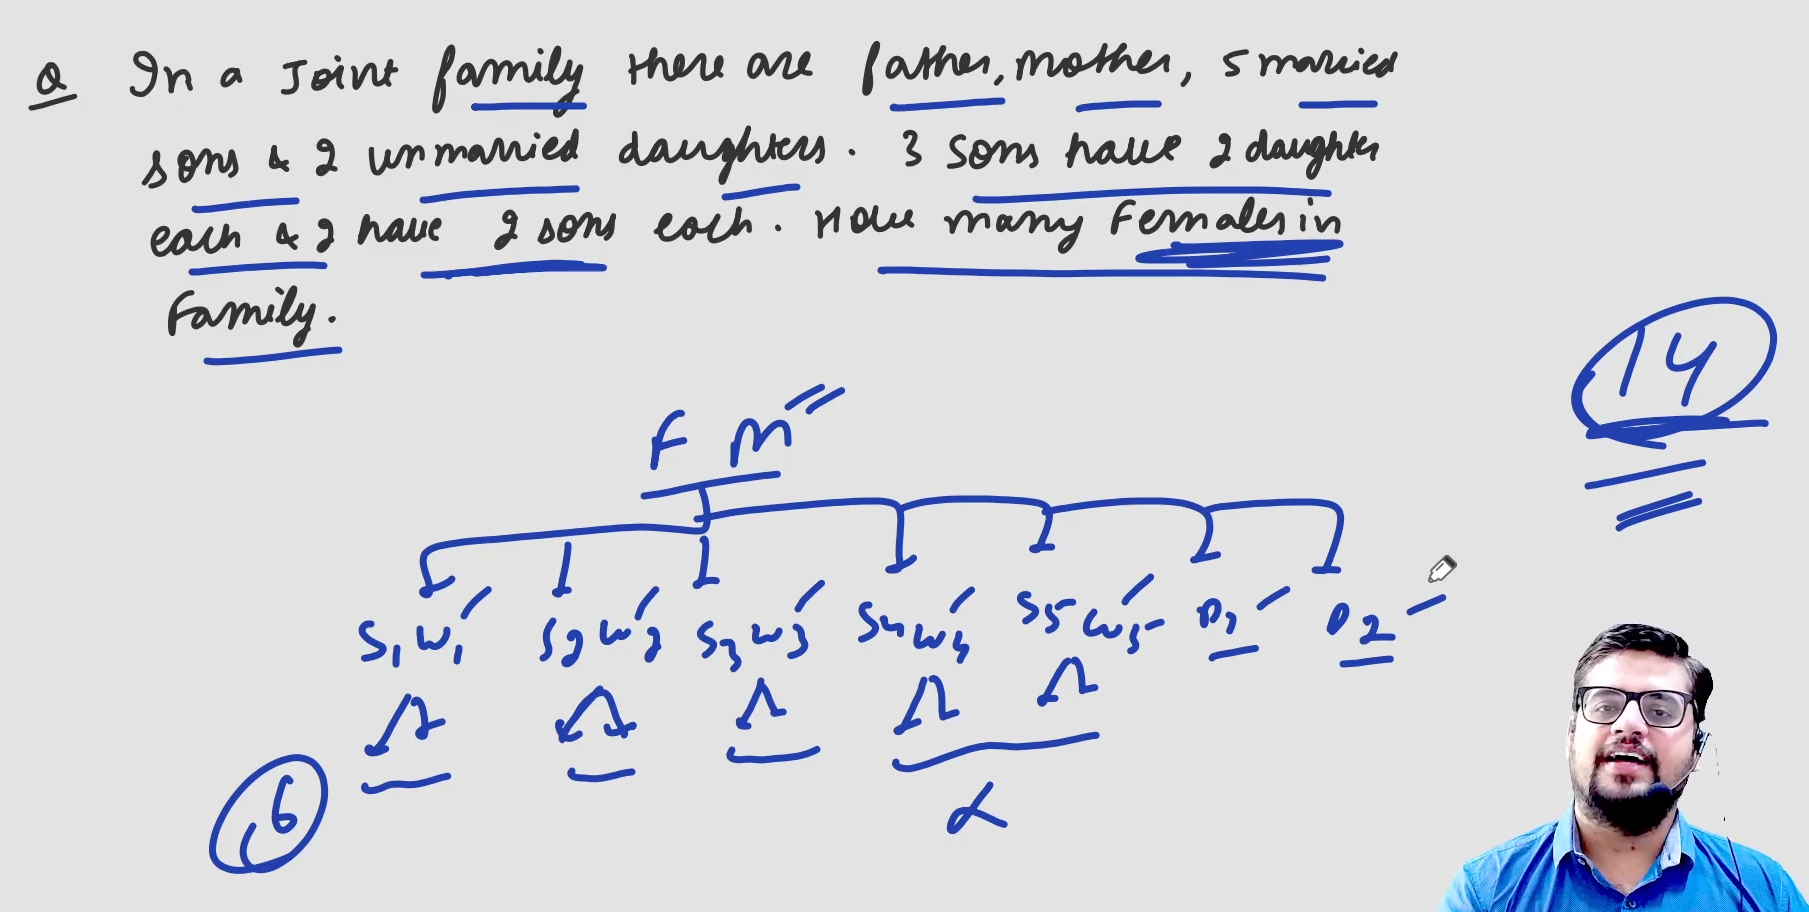 Q In a Joint family there are father, mother, 5 married
sons & 2 unmarried daughters. 3 sons have 2 daughter
each & 2 have 2 sons each. How many Females in
Family.
14
F M
S1 W1 S2 W2 S3 W3 S4 W4 S5 W5 D1 D2
6